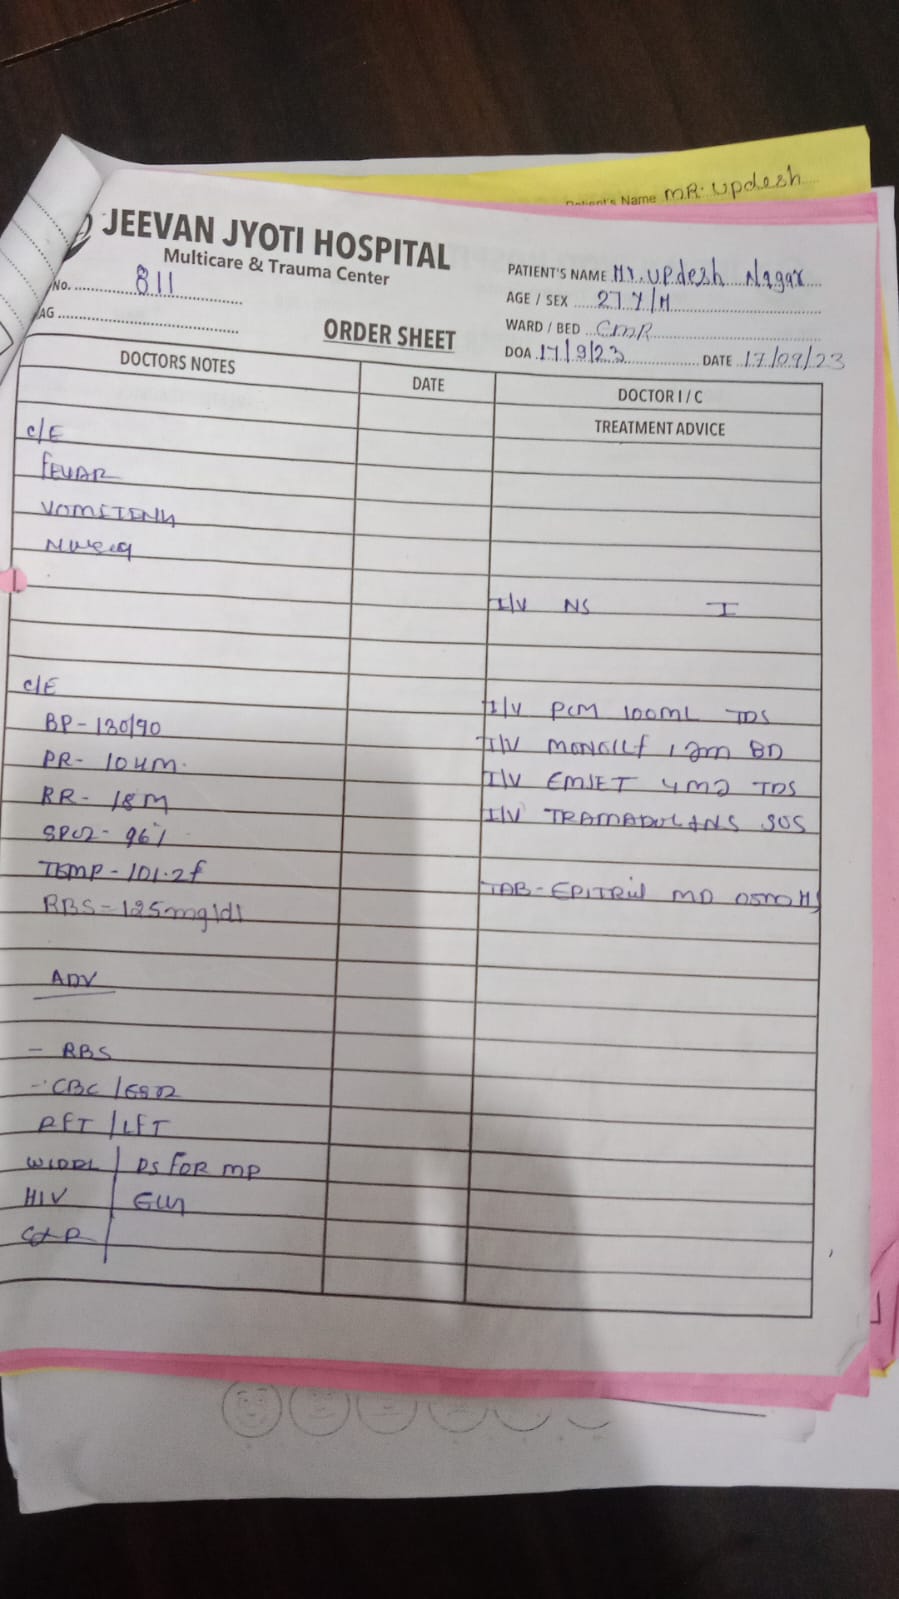 Patient's Name MR. Updesh
JEEVAN JYOTI HOSPITAL
Multicare & Trauma Center
No. 811
AG
ORDER SHEET
PATIENT'S NAME Mr. Updesh Nagar
AGE / SEX 27Y/M
WARD / BED
DOA 17/9/23 DATE 17/09/23
DOCTORS NOTES DATE DOCTOR I / C
TREATMENT ADVICE
C/E
FEVAR
VOMITING
I/V NS I
C/E
I/V PCM 100ML TDS
BP-130/90
I/V MONOCEF 1 gm BD
PR- 104M.
I/V EMSET 4mg TDS
RR- 18M
I/V TRAMADOL SOS
SPO2- 96%
TEMP-101.2f
TAB- MD
RBS=125mg/dl
ADV
- RBS
- CBC/ESR
RFT/LFT
WIDAL PS FOR MP
HIV